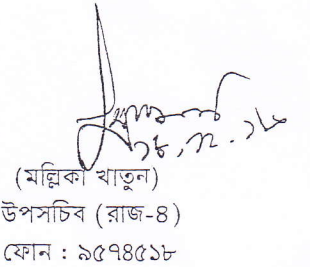 (মল্লিকা খাতুন)
উপসচিব (রাজ-৪)
ফোন : ৯৫৭৪৫১৮